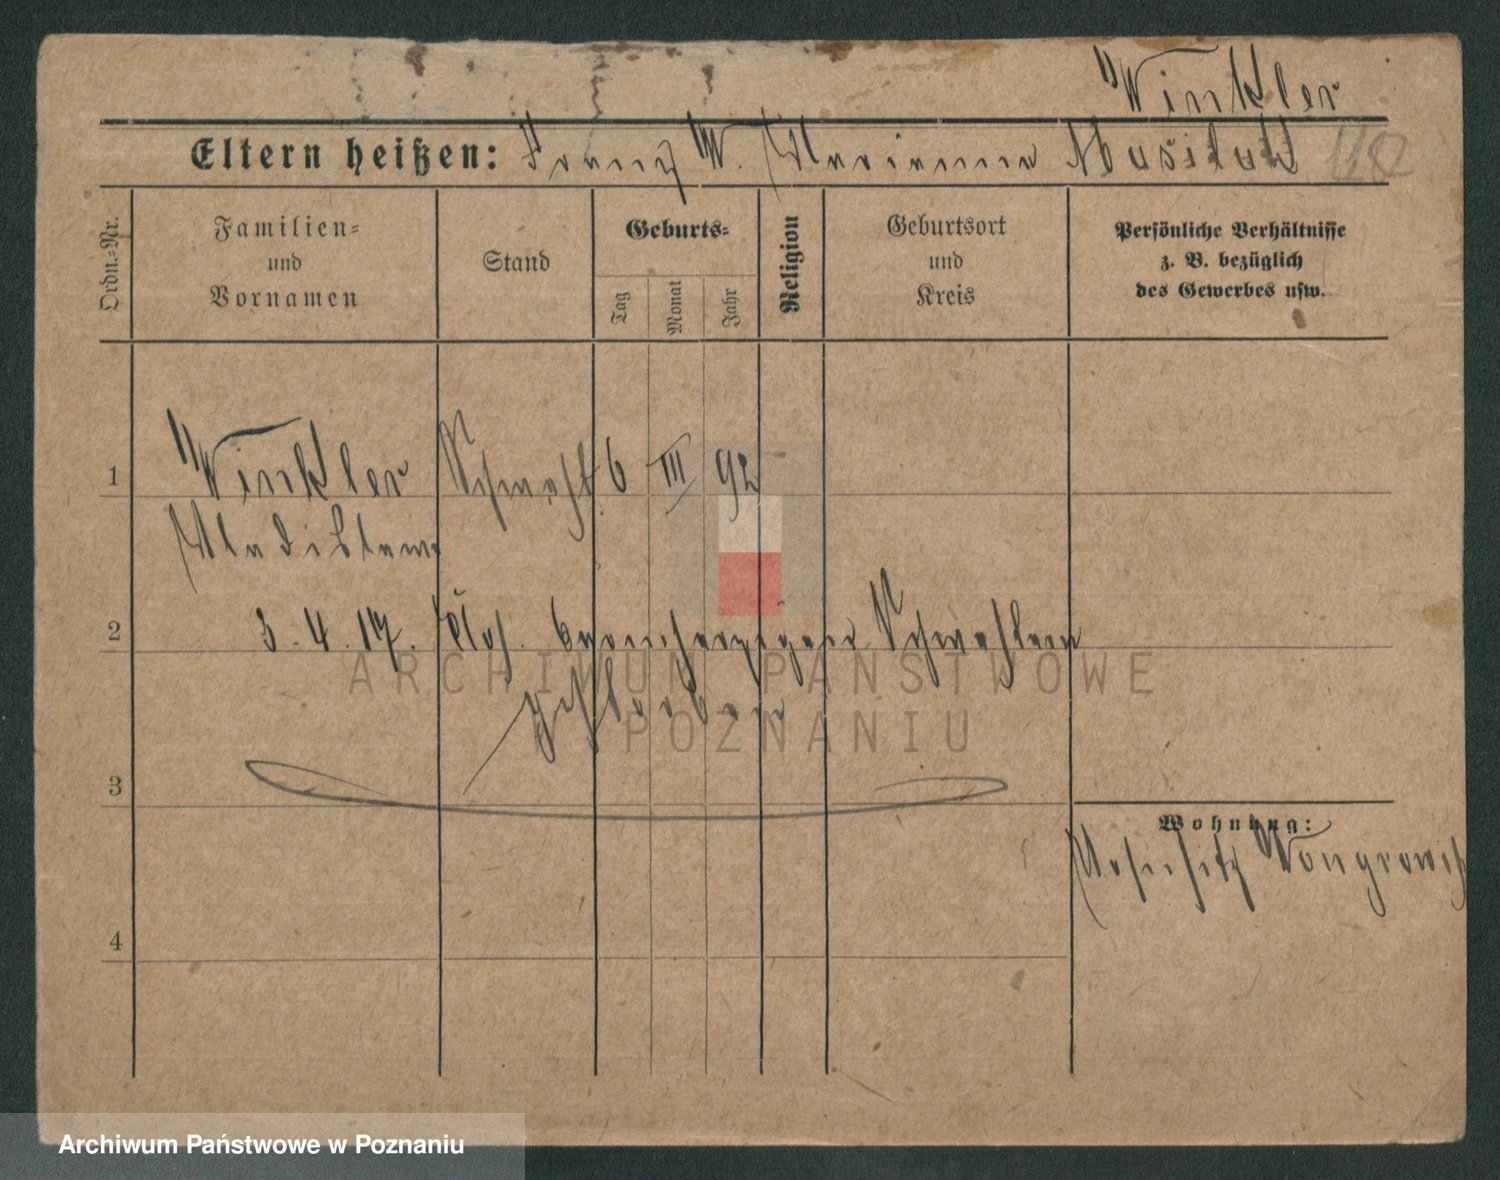 Winkler
Eltern heißen: Franz W. Marianna 1182
Ordn.-Nr.
Familien- und Vornamen
Stand
Geburts-
Tag
Monat
Jahr
Religion
Geburtsort und Kreis
Persönliche Verhältnisse
z. B. bezüglich
des Gewerbes usw.
1 Winkler 6 III 92
Wladislawa
2 3. 4. 17. Klos. barmherzigen Schwestern
gestorben
3
Wohnung:
Wongrowitz
4
ARCHIWUM PAŃSTWOWE
W POZNANIU
Archiwum Państwowe w Poznaniu